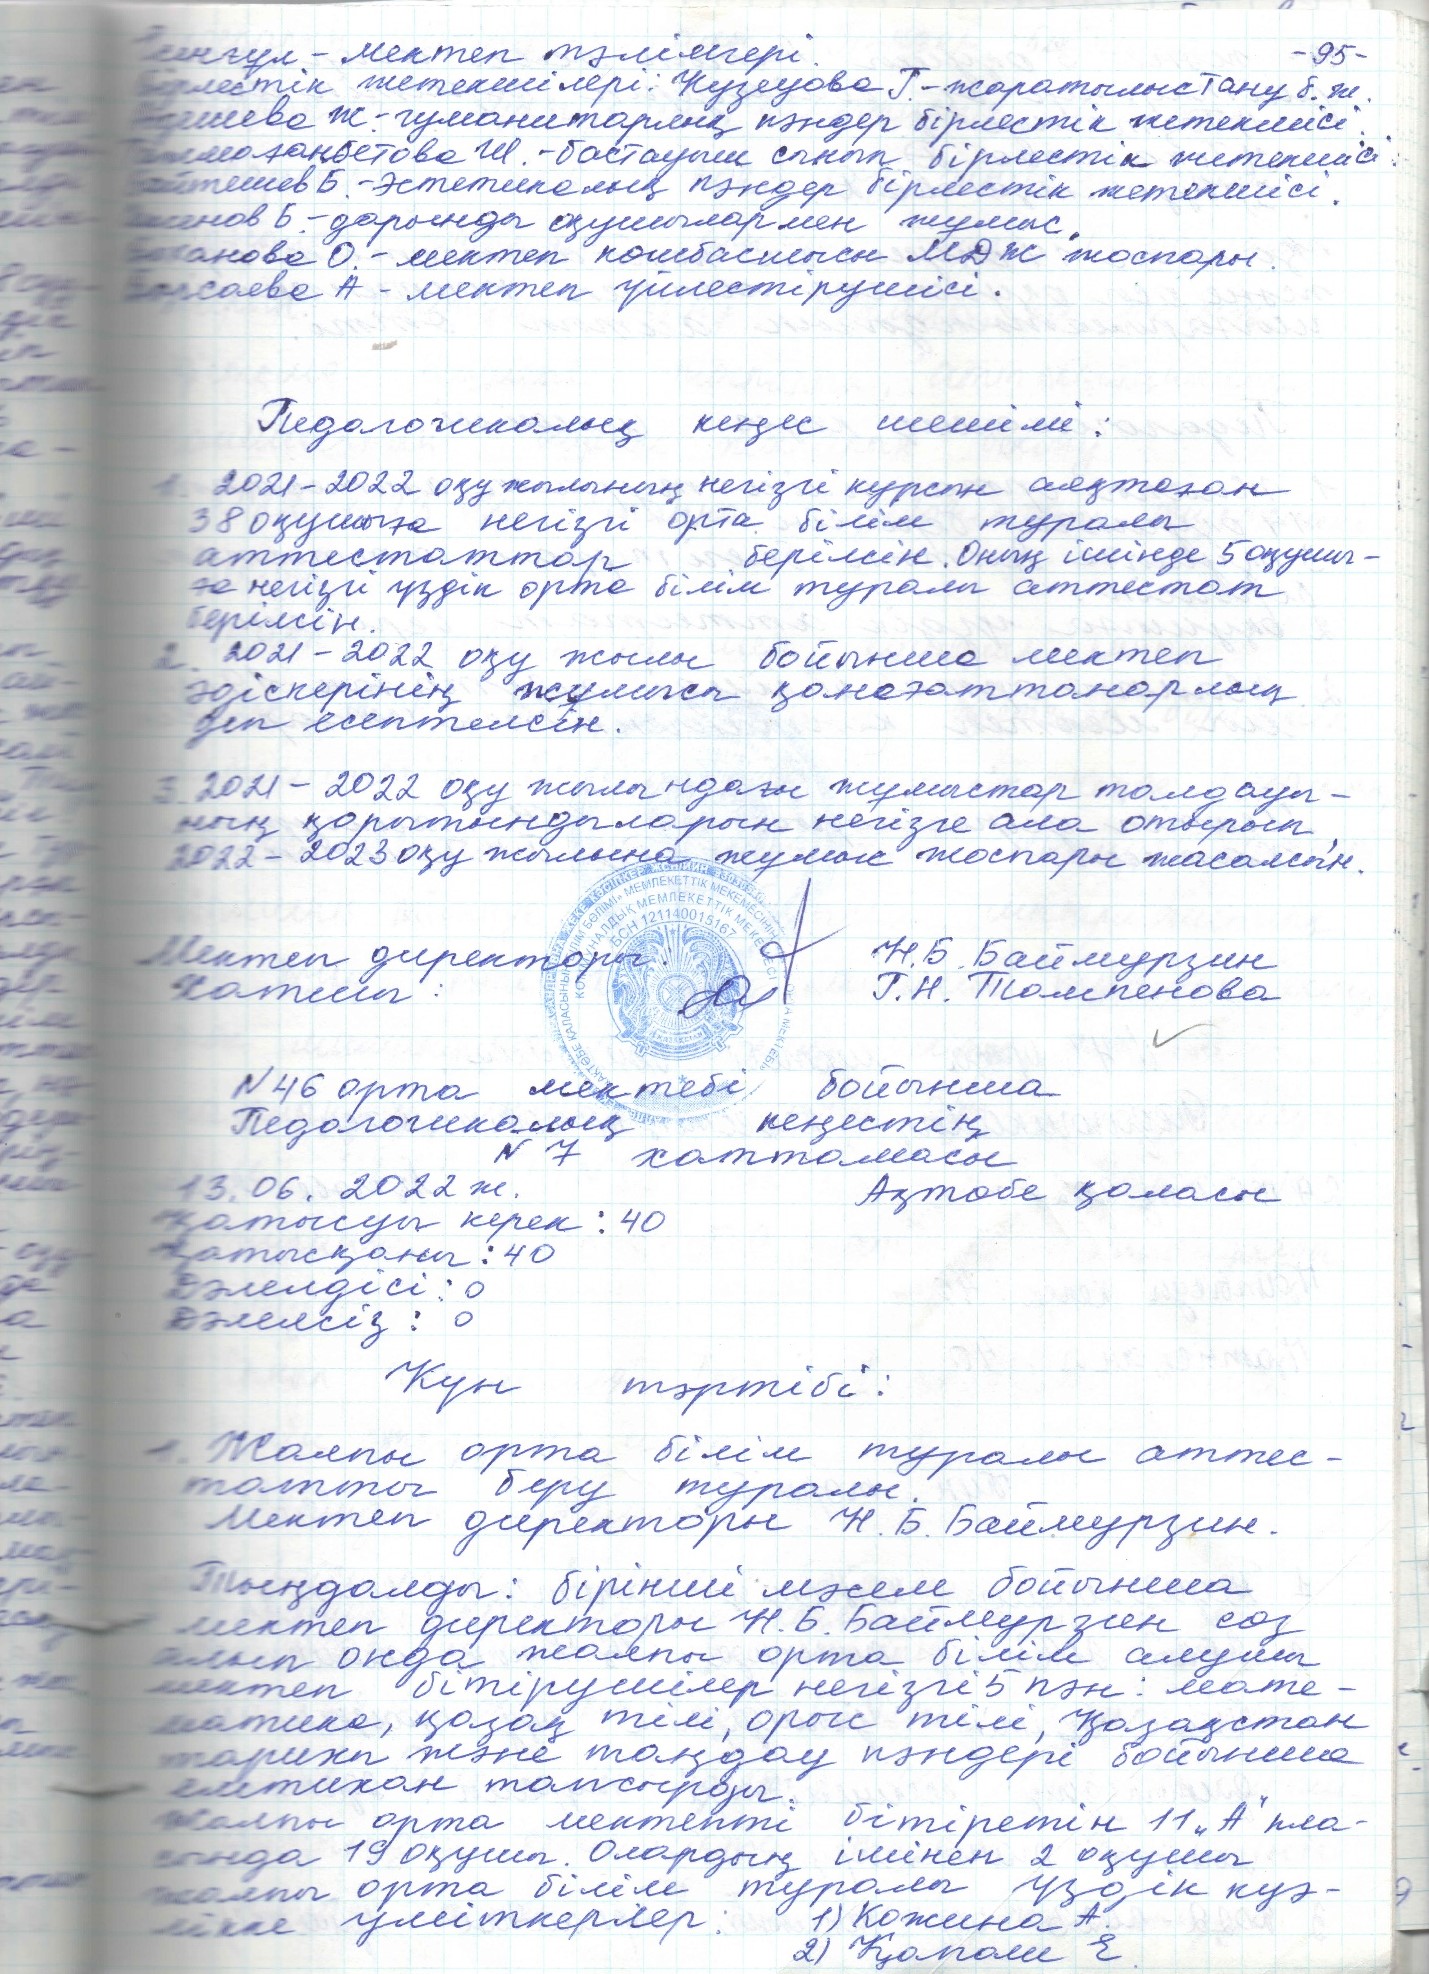 - мектеп тәлімгері. -95-
Бірлестік жетекшілері: Кузецова Г. - жаратылыстану б.ж.
Ж. - гуманитарлық пәндер бірлестік жетекшісі.
Ш. - бастауыш сынып бірлестік жетекшісі.
Б. - эстетикалық пәндер бірлестік жетекшісі.
Б. - дарынды оқушылармен жұмыс.
О. - мектеп кошбасшысы МДЖ жоспары.
А - мектеп үйлестірушісі.
Педагогикалық кеңес шешімі:
1. 2021-2022 оқу жылының негізгі курсын аяқтаған
38 оқушыға негізгі орта білім туралы
аттестаттар берілсін. Оның ішінде 5 оқушы-
ға негізгі үздік орта білім туралы аттестат
берілсін.
2. 2021-2022 оқу жылы бойынша мектеп
әдіскерінің жұмысы қанағаттанарлық
деп есептелсін.
3. 2021-2022 оқу жылындағы жұмыстар талдауы-
ның қорытындыларын негізге ала отырып,
2022-2023 оқу жылына жұмыс жоспары жасалсын.
БСН 121140015167
ҚАЗАҚСТАН
Мектеп директоры: Н.Б. Баймурзин
Хатшы: Г.Н. Тампенова
N46 орта мектебі бойынша
Педагогикалық кеңестің
N 7 хаттамасы
13.06.2022 ж. Ақтөбе қаласы
Қатысуы керек: 40
Қатысқаны: 40
Дәлелдісі: 0
Дәлелсіз: 0
Күн тәртібі:
1. Жалпы орта білім туралы аттес-
татты беру туралы.
Мектеп директоры Н.Б. Баймурзин.
Тыңдалды: бірінші мәселе бойынша
мектеп директоры Н.Б. Баймурзин сөз
алып онда жалпы орта білім алушы
мектеп бітірушілер негізгі 5 пән: мате-
матика, қазақ тілі, орыс тілі, Қазақстан
тарихы және таңдау пәндері бойынша
емтихан тапсырды.
Жалпы орта мектепті бітіретін 11 „А" кла-
сында 19 оқушы. Олардың ішінен 2 оқушы
жалпы орта білім туралы үздік куә-
лікке үміткерлер: 1) Кожина А.
2) Қапаш Е.